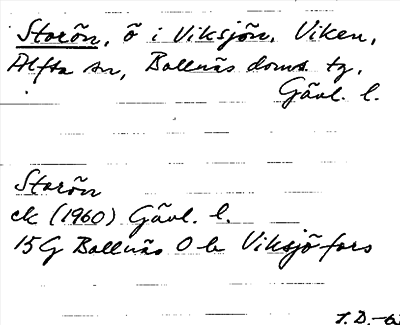 Storön, ö i Viksjön, Viken,
Alfta sn, Bollnäs doms. tg,
Gävl. l.
Storön
ek (1960) Gävl. l.
15G Bollnäs 0 b Viksjöfors